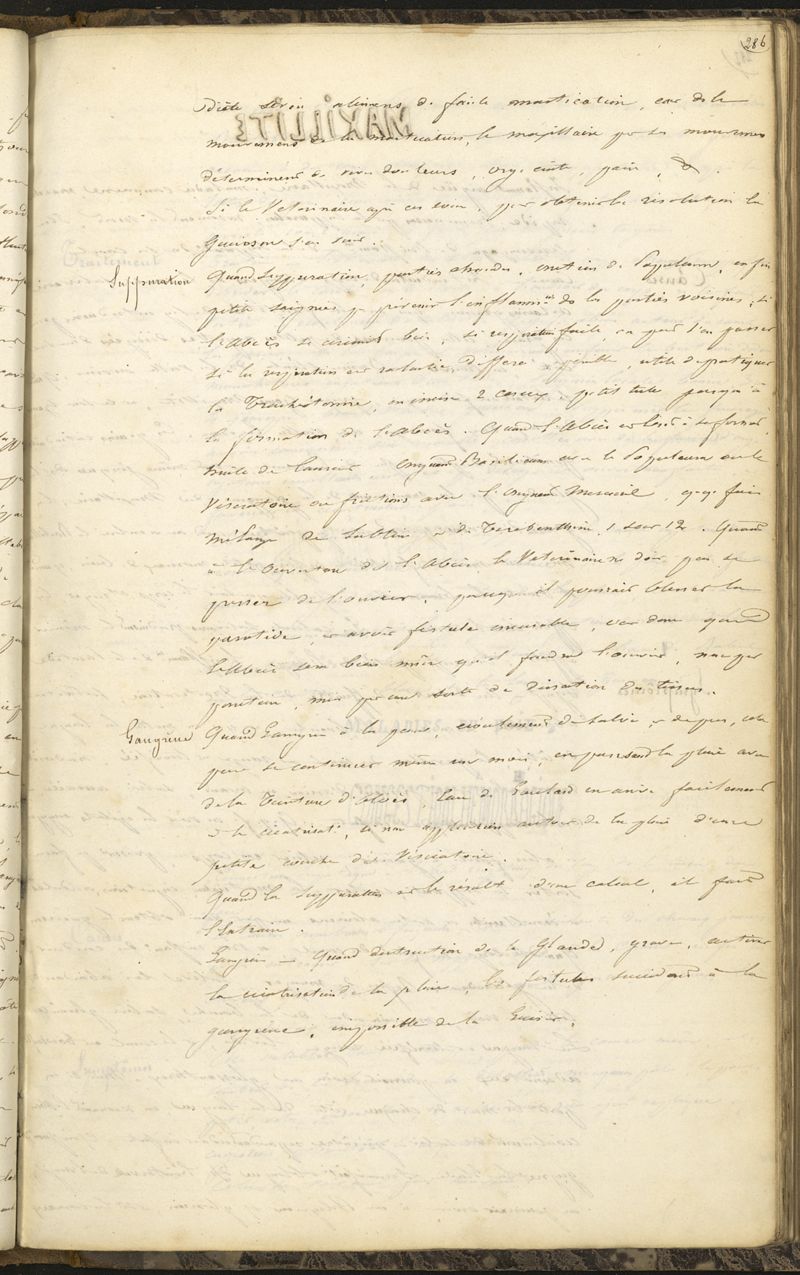 286
Diète sévère alimens de facile mastication, car dans les
mouvemens de la mastication, le maxillaire par ses mouvemens
déterminent de vives douleurs, orge cuite, pain, &.
Si le Vétérinaire agit ces soins, par obtenir la résolution la
Guérison s'en suit.
Suppuration
Quand Suppuration, parties chaudes, onction de Populeum, enfin
petite saignée pr prévenir l'inflammon de les parties voisines, si
l'Abcès se circonscrit bien, si respiration facile, on peut s'en passer
si la respiration est ralentie, difficile, pénible, utile de pratiquer
la Trachéotomie, on incise 2 cerceaux, petit tube jusqu'à
la formation de l'Abcès. Quand l'Abcès est long à se former,
huile de laurier, onguent Basilicum avec le Populeum ou le
Vésicatoire ou frictions avec l'onguent Mercuriel, qq fois
Mélange de Sublimé & de Térébenthine, 1 sur 12. Quand
à l'ouverture de l'Abcès le Vétérinaire ne doit pas se
presser de l'ouvrir, parcequ'il pourrait blesser la
parotide, & avoir fistule incurable, c'est donc quand
l'Abcès sera bien mûr qu'il faudra l'ouvrir, non par
ponction, mais par une sorte de des tissus.
Gangrène
Quand Gangrène à la peau, écoulement de salive & de pus, cela
peut se continuer même un mois, en pansant la plaie avec
de la Teinture d'Aloès, l'eau de Goulard on arrive facilement
à la cicatrisati, si non application autour de la plaie d'une
petite couche de Vésicatoire.
Quand la suppuration est le résultt d'un calcul, il faut
l'Extraire.
Gangrène — Quand destruction de la Glande, grave, activer
la cicatrisation de la plaie, les fistules succèdent à la
gangrène, impossible de la Guérir.